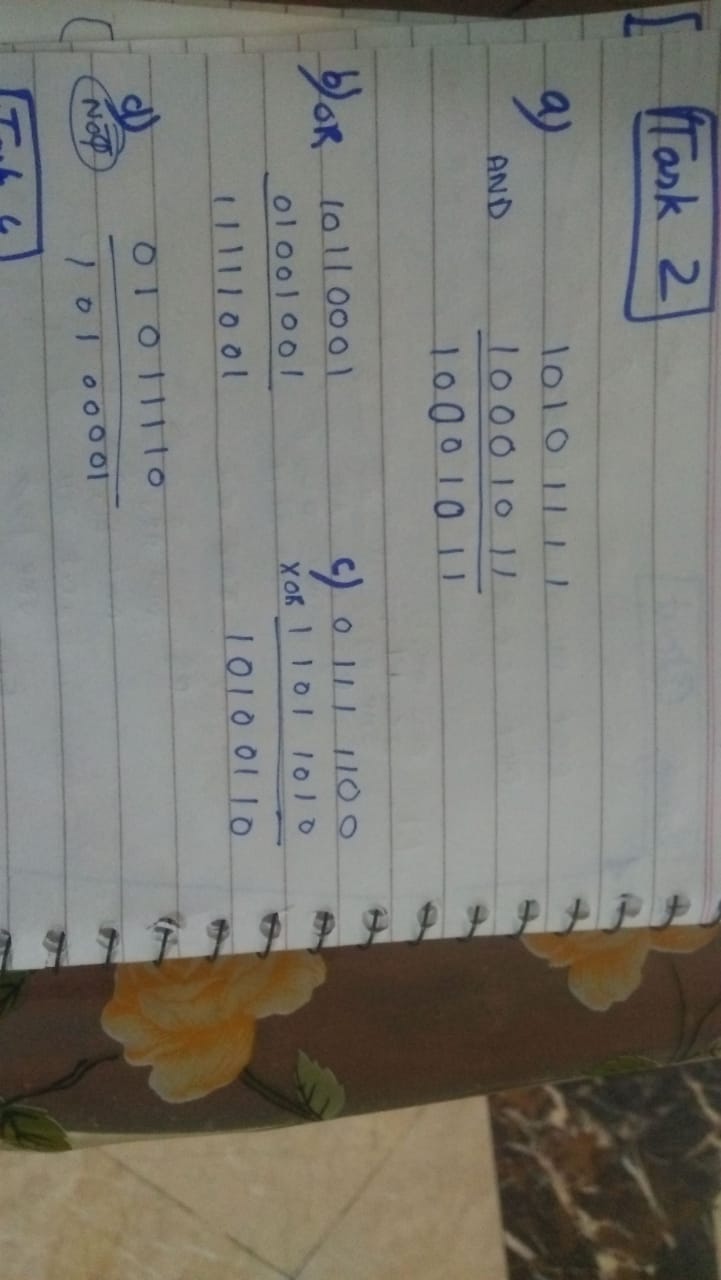 Task 2
a) 10101111
AND 10001011
10001011
b) OR 10110001
01001001
11111001
c) 0111 1100
XOR 1101 1010
10100110
d) 01011110
NOT 10100001